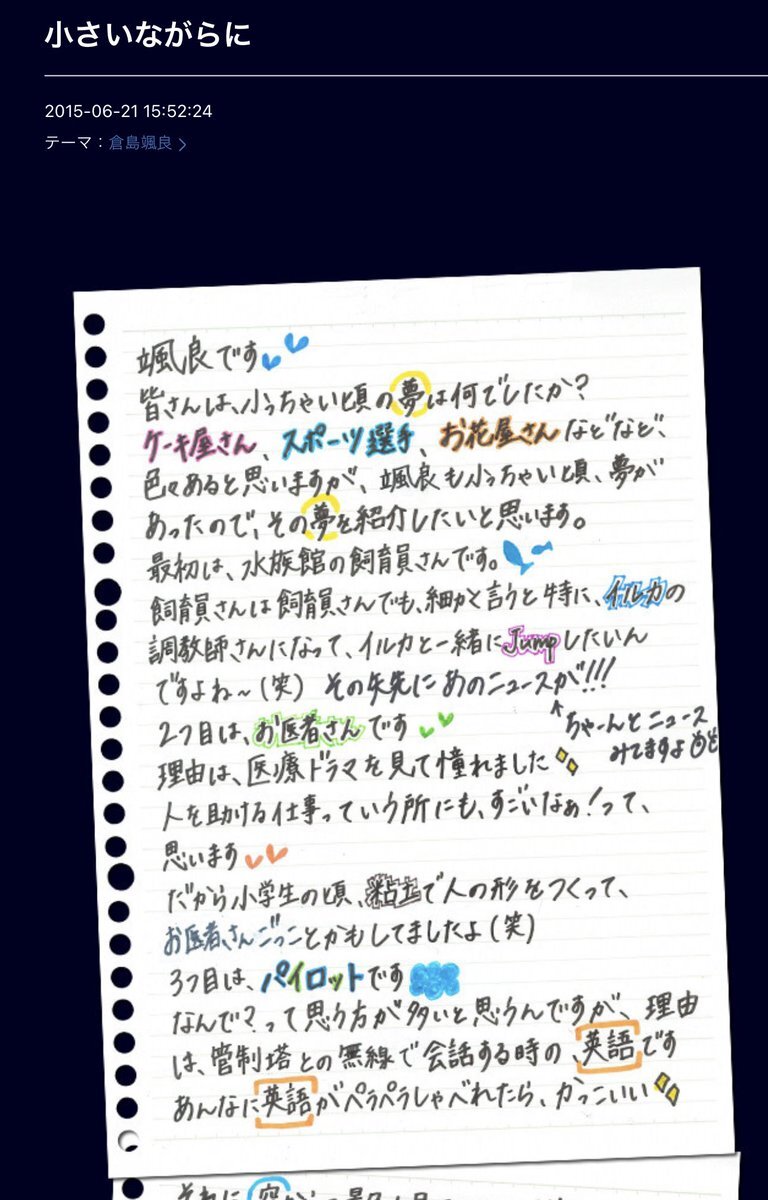 小さいながらに
2015-06-21 15:52:24
テーマ：倉島颯良 >
颯良です
皆さんは、小っちゃい頃の夢は何でしたか？
ケーキ屋さん、スポーツ選手、お花屋さんなどなど、
色々あると思いますが、颯良も小っちゃい頃、夢が
あったので、その夢を紹介したいと思います。
最初は、水族館の飼育員さんです。
飼育員さんは飼育員さんでも、細かく言うと特に、イルカの
調教師さんになって、イルカと一緒にJumpしたいん
ですよね~(笑) その矢先にあのニュースが!!!
↑ちゃーんとニュース
みてますよ
2つ目は、お医者さんです
理由は、医療ドラマを見て憧れました
人を助ける仕事っていう所にも、すごいなぁ！って、
思います
だから小学生の頃、粘土で人の形をつくって、
お医者さんごっことかもしてましたよ(笑)
3つ目は、パイロットです
なんで？って思う方が多いと思うんですが、理由
は、管制塔との無線で会話する時の、英語です
あんなに英語がペラペラしゃべれたら、かっこいい
それに空から